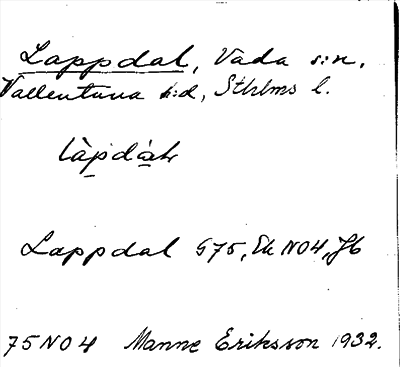 Lappdal, Vada s:n,
Vallentuna h:d, Sthlms l.
Lappdal G75, Ek NO4, Jb
75NO4 Manne Eriksson 1932.